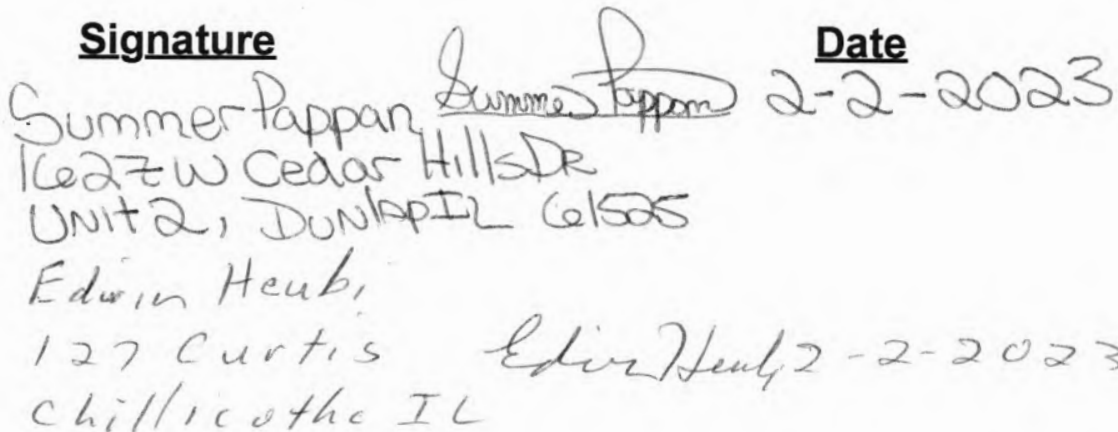 Signature Date
Summer Pappan Summer Pappan 2-2-2023
1627 W Cedar Hills DR
UNIT 2, DUNlAP IL 61525
Edwin Heubi
127 Curtis Edwin Heubi 2-2-2023
Chillicothe IL